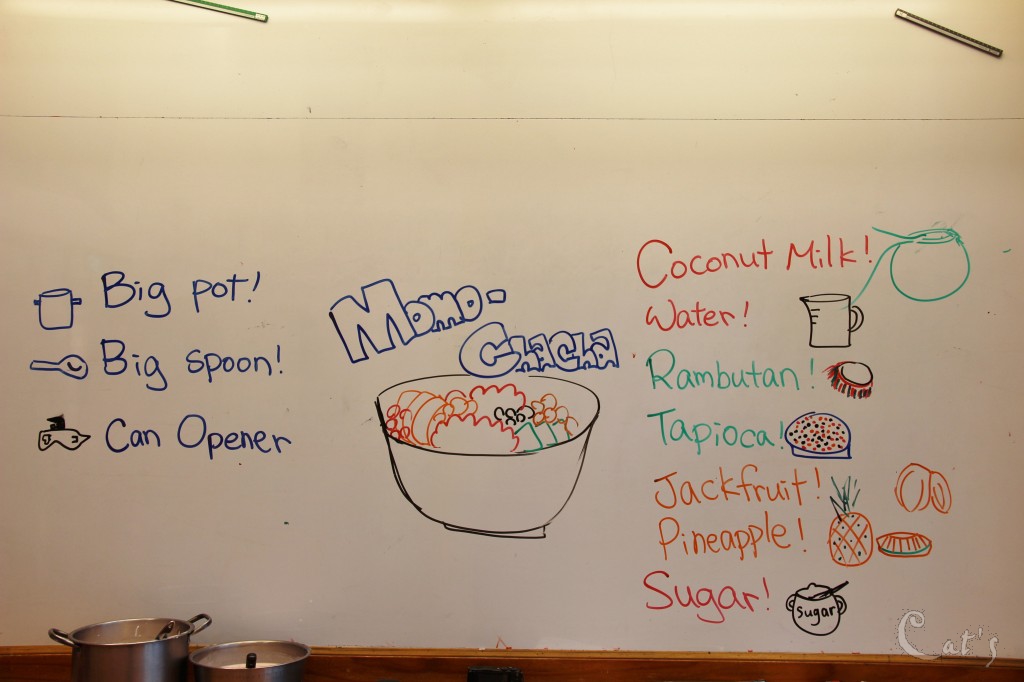 Big pot!
Big spoon!
Can Opener
Momo-
Chacha
Coconut Milk!
Water!
Rambutan!
Tapioca!
Jackfruit!
Pineapple!
Sugar!
sugar
Cat's